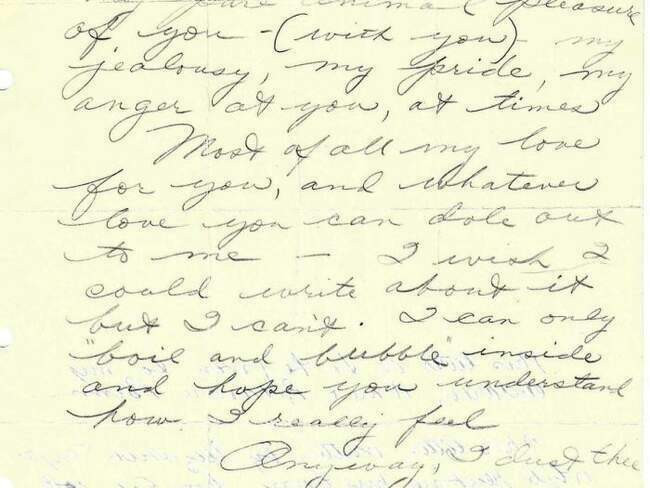 my pure animal pleasure
of you - (with you) - my
jealousy, my pride, my
anger at you, at times
Most of all my love
for you, and whatever
love you can dole out
to me - I wish I
could write about it
but I can't. I can only
"boil and bubble" inside
and hope you understand
how I really feel
Anyway, I lust thee